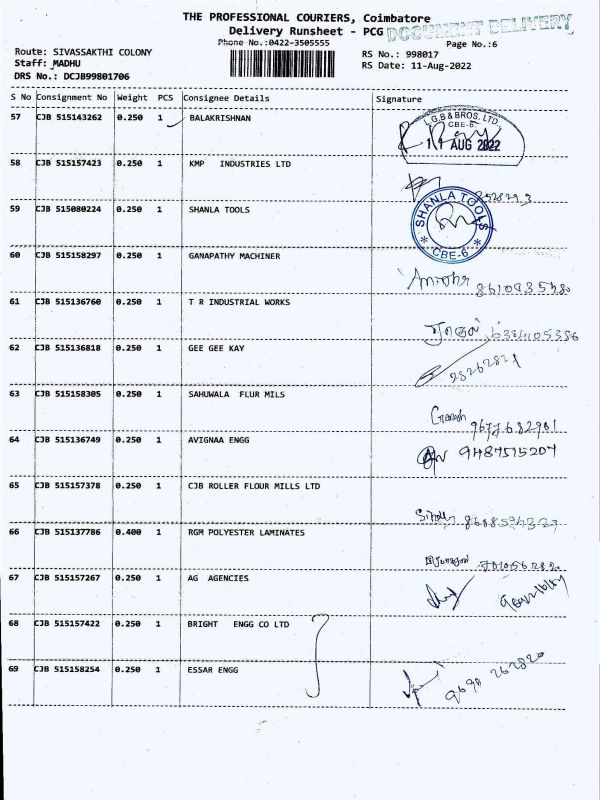 THE PROFESSIONAL COURIERS, Coimbatore
Delivery Runsheet - PCG DOCUMENT DELIVERY
Phone No.:0422-3505555
Page No.:6
Route: SIVASSAKTHI COLONY
RS No.: 998017
Staff: MADHU
RS Date: 11-Aug-2022
DRS No.: DCJB99801706
S No Consignment No Weight PCS Consignee Details Signature
57 CJB 515143262 0.250 1 BALAKRISHNAN
L.G.B & BROS. LTD.
CBE-6.
11 AUG 2022
58 CJB 515157423 0.250 1 KMP INDUSTRIES LTD
59 CJB 515080224 0.250 1 SHANLA TOOLS
SHANLA TOOLS
* CBE-6 *
60 CJB 515158297 0.250 1 GANAPATHY MACHINER
61 CJB 515136760 0.250 1 T R INDUSTRIAL WORKS
62 CJB 515136818 0.250 1 GEE GEE KAY
63 CJB 515158305 0.250 1 SAHUWALA FLUR MILS
Ganesh
9677682981
64 CJB 515136749 0.250 1 AVIGNAA ENGG
9487515207
65 CJB 515157378 0.250 1 CJB ROLLER FLOUR MILLS LTD
66 CJB 515137786 0.400 1 RGM POLYESTER LAMINATES
67 CJB 515157267 0.250 1 AG AGENCIES
68 CJB 515157422 0.250 1 BRIGHT ENGG CO LTD
69 CJB 515158254 0.250 1 ESSAR ENGG